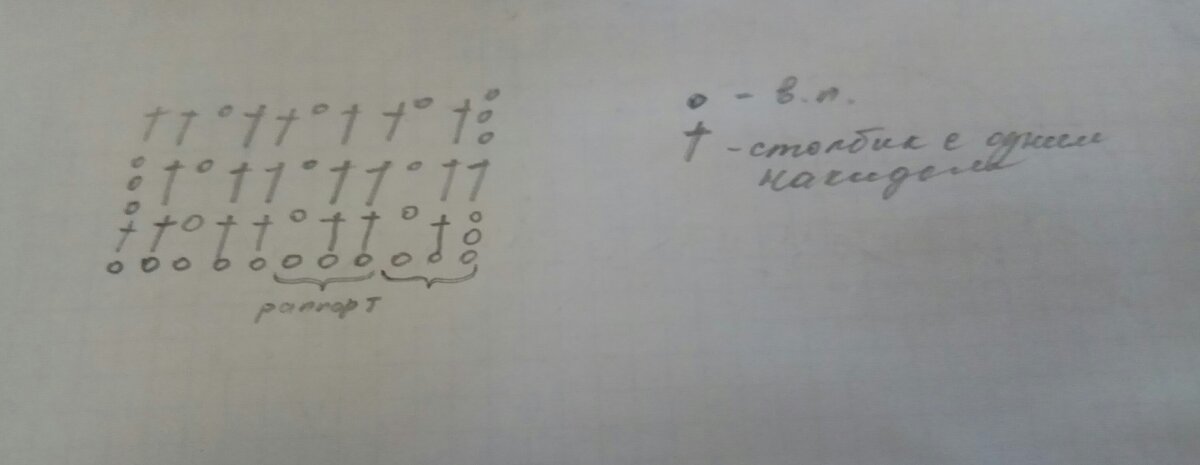 - в.п.
- столбик с одним
накидом
раппорт